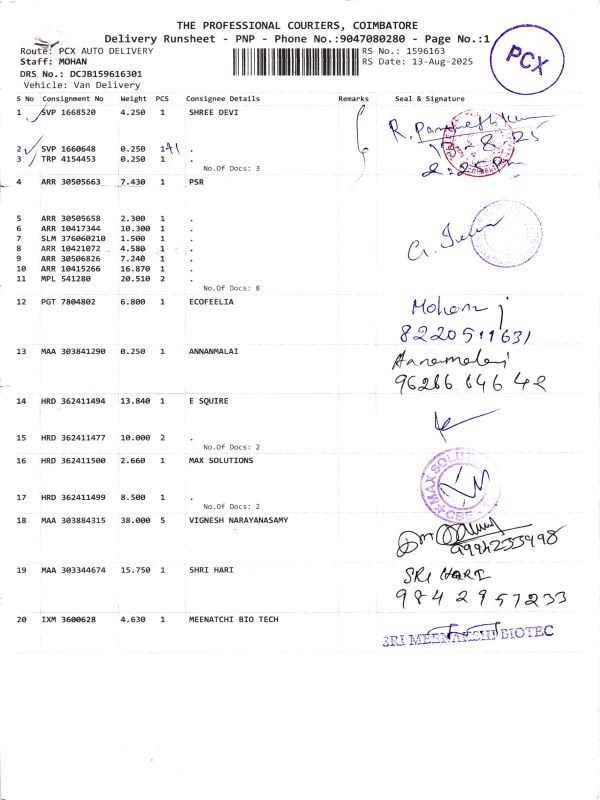 THE PROFESSIONAL COURIERS, COIMBATORE
Delivery Runsheet - PNP - Phone No.:9047080280 - Page No.:1
Route: PCX AUTO DELIVERY RS No.: 1596163
Staff: MOHAN RS Date: 13-Aug-2025
DRS No.: DCJB159616301
Vehicle: Van Delivery
PCX
S No Consignment No Weight PCS Consignee Details Remarks Seal & Signature
1 SVP 1668520 4.250 1 SHREE DEVI
2 SVP 1660648 0.250 1
3 TRP 4154453 0.250 1 .
No.Of Docs: 3
4 ARR 30505663 7.430 1 PSR
5 ARR 30505658 2.300 1 .
6 ARR 10417344 10.300 1 .
7 SLM 376060210 1.500 1 .
8 ARR 10421072 4.580 1 .
9 ARR 30506826 7.240 1 .
10 ARR 10415266 16.870 1 .
11 MPL 541280 20.510 2 .
No.Of Docs: 8
12 PGT 7804802 6.800 1 ECOFEELIA
8220511631
13 MAA 303841290 0.250 1 ANNANMALAI
96266 646 42
14 HRD 362411494 13.840 1 E SQUIRE
15 HRD 362411477 10.000 2 .
No.Of Docs: 2
16 HRD 362411500 2.660 1 MAX SOLUTIONS
17 HRD 362411499 8.500 1 .
No.Of Docs: 2
18 MAA 303884315 38.000 5 VIGNESH NARAYANASAMY
19 MAA 303344674 15.750 1 SHRI HARI SRI HARI
9842957233
20 IXM 3600628 4.630 1 MEENATCHI BIO TECH
SRI MEENAKSHI BIOTEC